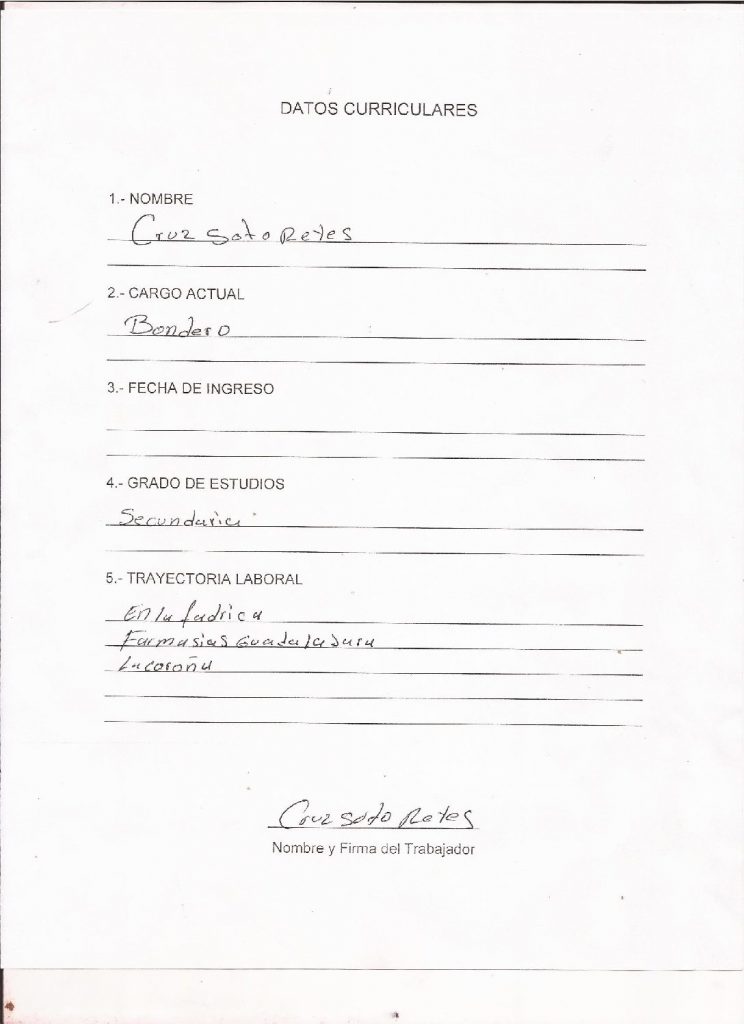 DATOS CURRICULARES
1.- NOMBRE
Cruz Soto Reyes
2.- CARGO ACTUAL
Bondero
3.- FECHA DE INGRESO
4.- GRADO DE ESTUDIOS
Secundaria
5.- TRAYECTORIA LABORAL
En la fadrica
Farmasias Guadalajara
La coroña
Cruz Soto Reyes
Nombre y Firma del Trabajador